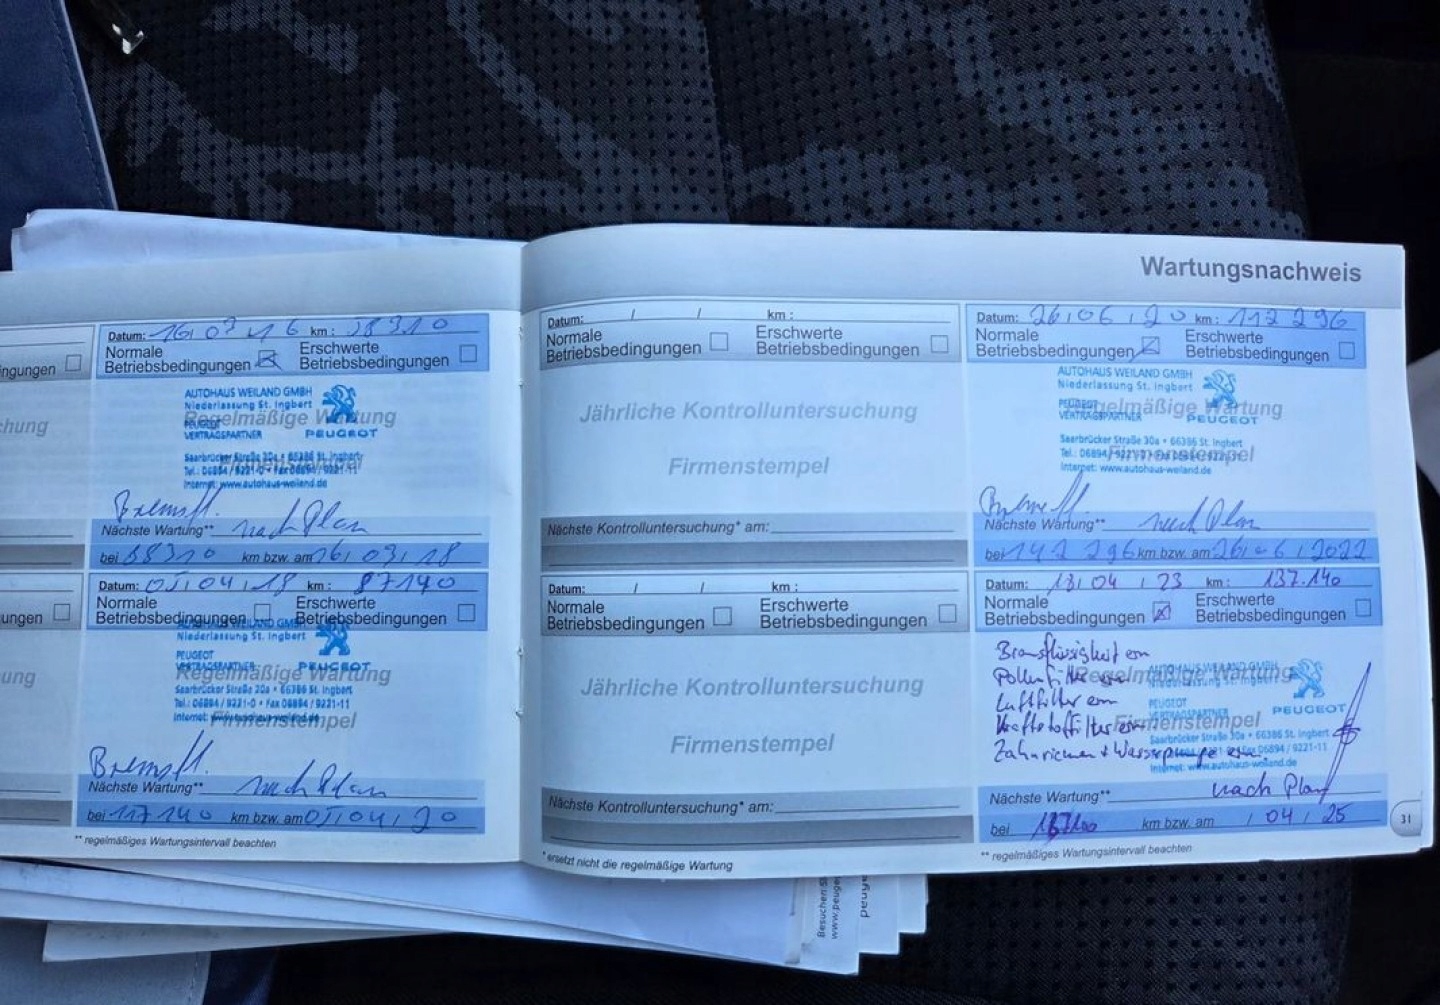 Wartungsnachweis
Datum: 16.03.16 km: 58310
Normale Betriebsbedingungen
Erschwerte Betriebsbedingungen
AUTOHAUS WEILAND GMBH
Niederlassung St. Ingbert
Regelmäßige Wartung
PEUGEOT
VERTRAGSPARTNER PEUGEOT
Saarbrücker Straße 30a • 66386 St. Ingbert
Firmenstempel
Tel.: 06894 / 9221-0 • Fax 06894 / 9221-11
Internet: www.autohaus-weiland.de
Bremsfl.
Nächste Wartung** nach Plan
bei 88310 km bzw. am 16.03.18
Datum: 05.04.18 km: 87140
Normale Betriebsbedingungen
Erschwerte Betriebsbedingungen
AUTOHAUS WEILAND GMBH
Niederlassung St. Ingbert
PEUGEOT
VERTRAGSPARTNER PEUGEOT
Regelmäßige Wartung
Saarbrücker Straße 30a • 66386 St. Ingbert
Tel.: 06894 / 9221-0 • Fax 06894 / 9221-11
Internet: www.autohaus-weiland.de
Firmenstempel
Bremsfl.
Nächste Wartung** nach Plan
bei 117140 km bzw. am 05.04.20
** regelmäßiges Wartungsintervall beachten
ngungen
hung
ungen
ung
Datum: / / km:
Normale Betriebsbedingungen
Erschwerte Betriebsbedingungen
Jährliche Kontrolluntersuchung
Firmenstempel
Nächste Kontrolluntersuchung* am:
Datum: / / km:
Normale Betriebsbedingungen
Erschwerte Betriebsbedingungen
Jährliche Kontrolluntersuchung
Firmenstempel
Nächste Kontrolluntersuchung* am:
* ersetzt nicht die regelmäßige Wartung
Datum: 26.06.20 km: 112 296
Normale Betriebsbedingungen
Erschwerte Betriebsbedingungen
AUTOHAUS WEILAND GMBH
Niederlassung St. Ingbert
PEUGEOT
Regelmäßige Wartung
VERTRAGSPARTNER PEUGEOT
Saarbrücker Straße 30a • 66386 St. Ingbert
Firmenstempel
Tel.: 06894 / 9221-0 •
Internet: www.autohaus-weiland.de
Bremsfl.
Nächste Wartung** nach Plan
bei 142 296 km bzw. am 26.06.2022
Datum: 13.04.23 km: 137.140
Normale Betriebsbedingungen
Erschwerte Betriebsbedingungen
Bremsflüssigkeit ern
Pollenfilter ern
Luftfilter ern
Kraftstoffilter ern
Zahnriemen + Wasserpumpe ern.
AUTOHAUS WEILAND GMBH
Regelmäßige Wartung
Niederlassung St. Ingbert
PEUGEOT
VERTRAGSPARTNER PEUGEOT
Firmenstempel
Saarbrücker Straße 30a • 66386 St. Ingbert
Fax 06894 / 9221-11
Internet: www.autohaus-weiland.de
Nächste Wartung** nach Plan
bei km bzw. am / 04 / 25
** regelmäßiges Wartungsintervall beachten
31
Besuchen
www.peuge
peuge